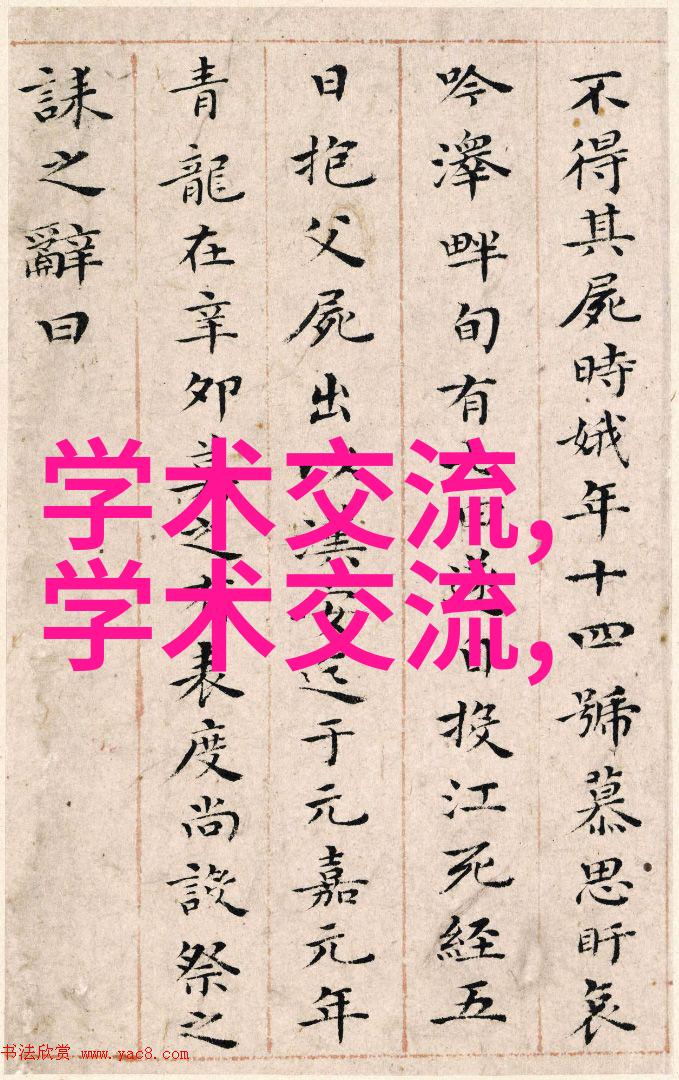 不得其屍時娥年十四號慕思盱哀
吟澤畔旬有日遂自投江死經五
日抱父屍出以漢安迄于元嘉元年
青龍在辛卯莫之有表度尚設祭之
誄之辭曰
学术交流,
学术交流,
书法欣赏 www.yac8.com